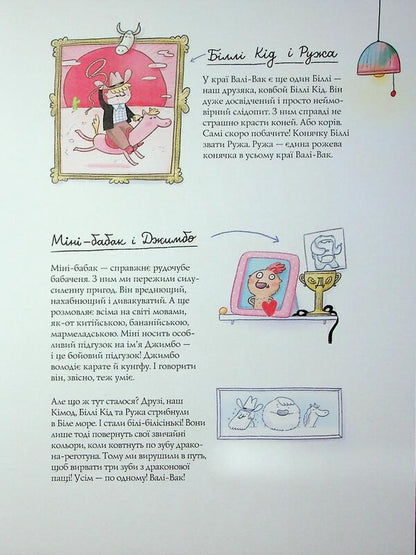 Біллі Кід і Ружа
У краї Валі-Вак є ще один Біллі —
наш друзяка, ковбой Біллі Кід. Він
дуже досвідчений і просто неймо-
вірний слідопит. З ним справді не
страшно красти коней. Або корів.
Самі скоро побачите! Конячку Біллі
звати Ружа. Ружа — єдина рожева
конячка в усьому краї Валі-Вак.
Міні-бабак і Джимбо
Міні-бабак — справжнє рудочубе
бабаченя. З ним ми пережили силу-
силенну пригод. Він вредніощий,
нахабнющий і дивакуватий. А ще
розмовляє всіма на світі мовами,
як-от китійською, бананійською,
мармеладською. Міні носить особ-
ливий підгузок на ім'я Джимбо —
і це бойовий підгузок! Джимбо
володіє карате й кунгфу. І говорити
він, звісно, теж уміє.
Але що ж тут сталося? Друзі, наш
Кімод, Біллі Кід та Ружа стрибнули
в Біле море. І стали біл-білісінькі! Вони
лише тоді повернуть свої звичайні
кольори, коли ковтнуть по зубу драко-
на-реготуна. Тому ми вирушили в путь,
щоб вирвати три зуби з драконової
пащі! Усім — по одному! Валі-Вак!